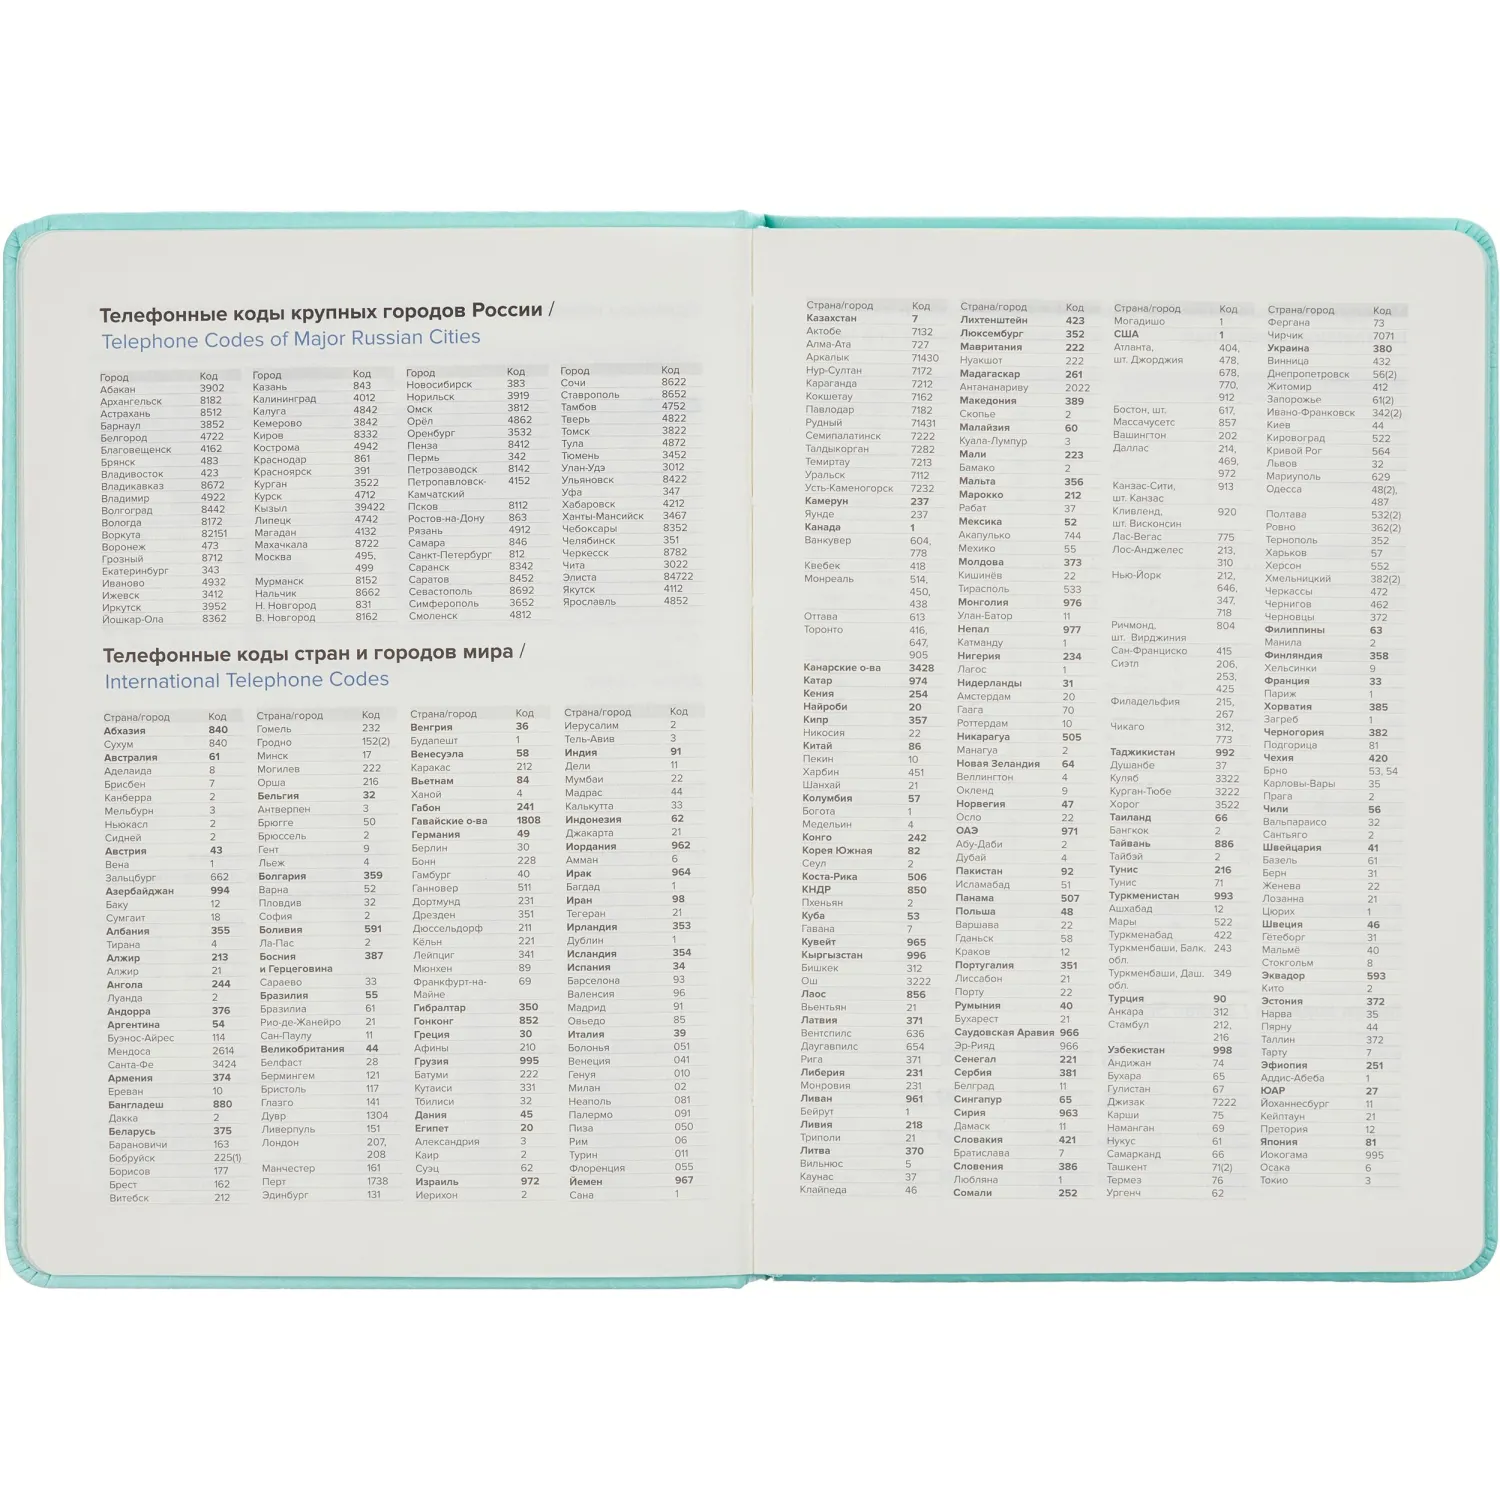 Телефонные коды крупных городов России /
Telephone Codes of Major Russian Cities
Город Код
Абакан 3902
Архангельск 8182
Астрахань 8512
Барнаул 3852
Белгород 4722
Благовещенск 4162
Брянск 483
Владивосток 423
Владикавказ 8672
Владимир 4922
Волгоград 8442
Вологда 8172
Воркута 82151
Воронеж 473
Грозный 8712
Екатеринбург 343
Иваново 4932
Ижевск 3412
Иркутск 3952
Йошкар-Ола 8362
Город Код
Казань 843
Калининград 4012
Калуга 4842
Кемерово 3842
Киров 8332
Кострома 4942
Краснодар 861
Красноярск 391
Курган 3522
Курск 4712
Кызыл 39422
Липецк 4742
Магадан 4132
Махачкала 8722
Москва 495,
499
Мурманск 8152
Нальчик 8662
Н. Новгород 831
В. Новгород 8162
Город Код
Новосибирск 383
Норильск 3919
Омск 3812
Орёл 4862
Оренбург 3532
Пенза 8412
Пермь 342
Петрозаводск 8142
Петропавловск- 4152
Камчатский
Псков 8112
Ростов-на-Дону 863
Рязань 4912
Самара 846
Санкт-Петербург 812
Саранск 8342
Саратов 8452
Севастополь 8692
Симферополь 3652
Смоленск 4812
Город Код
Сочи 8622
Ставрополь 8652
Тамбов 4752
Тверь 4822
Томск 3822
Тула 4872
Тюмень 3452
Улан-Удэ 3012
Ульяновск 8422
Уфа 347
Хабаровск 4212
Ханты-Мансийск 3467
Чебоксары 8352
Челябинск 351
Черкесск 8782
Чита 3022
Элиста 84722
Якутск 4112
Ярославль 4852
Телефонные коды стран и городов мира /
International Telephone Codes
Страна/город Код
Абхазия 840
Сухум 840
Австралия 61
Аделаида 8
Брисбен 7
Канберра 2
Мельбурн 3
Ньюкасл 2
Сидней 2
Австрия 43
Вена 1
Зальцбург 662
Азербайджан 994
Баку 12
Сумгаит 18
Албания 355
Тирана 4
Алжир 213
Алжир 21
Ангола 244
Луанда 2
Андорра 376
Аргентина 54
Буэнос-Айрес 114
Мендоса 2614
Санта-Фе 3424
Армения 374
Ереван 10
Бангладеш 880
Дакка 2
Беларусь 375
Барановичи 163
Бобруйск 225(1)
Борисов 177
Брест 162
Витебск 212
Страна/город Код
Гомель 232
Гродно 152(2)
Минск 17
Могилев 222
Орша 216
Бельгия 32
Антверпен 3
Брюгге 50
Брюссель 2
Гент 9
Льеж 4
Болгария 359
Варна 52
Пловдив 32
София 2
Боливия 591
Ла-Пас 2
Босния 387
и Герцеговина
Сараево 33
Бразилия 55
Бразилиа 61
Рио-де-Жанейро 21
Сан-Паулу 11
Великобритания 44
Белфаст 28
Бермингем 121
Бристоль 117
Глазго 141
Дувр 1304
Ливерпуль 151
Лондон 207,
208
Манчестер 161
Перт 1738
Эдинбург 131
Страна/город Код
Венгрия 36
Будапешт 1
Венесуэла 58
Каракас 212
Вьетнам 84
Ханой 4
Габон 241
Гавайские о-ва 1808
Германия 49
Берлин 30
Бонн 228
Гамбург 40
Ганновер 511
Дортмунд 231
Дрезден 351
Дюссельдорф 211
Кёльн 221
Лейпциг 341
Мюнхен 89
Франкфурт-на- 69
Майне
Гибралтар 350
Гонконг 852
Греция 30
Афины 210
Грузия 995
Батуми 222
Кутаиси 331
Тбилиси 32
Дания 45
Египет 20
Александрия 3
Каир 2
Суэц 62
Израиль 972
Иерихон 2
Страна/город Код
Иерусалим 2
Тель-Авив 3
Индия 91
Дели 11
Мумбаи 22
Мадрас 44
Калькутта 33
Индонезия 62
Джакарта 21
Иордания 962
Амман 6
Ирак 964
Багдад 1
Иран 98
Тегеран 21
Ирландия 353
Дублин 1
Исландия 354
Испания 34
Барселона 93
Валенсия 96
Мадрид 91
Овьедо 85
Италия 39
Болонья 051
Венеция 041
Генуя 010
Милан 02
Неаполь 081
Палермо 091
Пиза 050
Рим 06
Турин 011
Флоренция 055
Йемен 967
Сана 1
Страна/город Код
Казахстан 7
Актобе 7132
Алма-Ата 727
Аркалык 71430
Нур-Султан 7172
Караганда 7212
Кокшетау 7162
Павлодар 7182
Рудный 71431
Семипалатинск 7222
Талдыкорган 7282
Темиртау 7213
Уральск 7112
Усть-Каменогорск 7232
Камерун 237
Яунде 237
Канада 1
Ванкувер 604,
778
Квебек 418
Монреаль 514,
450,
438
Оттава 613
Торонто 416,
647,
905
Канарские о-ва 3428
Катар 974
Кения 254
Найроби 20
Кипр 357
Никосия 22
Китай 86
Пекин 10
Харбин 451
Шанхай 21
Колумбия 57
Богота 1
Медельин 4
Конго 242
Корея Южная 82
Сеул 2
Коста-Рика 506
КНДР 850
Пхеньян 2
Куба 53
Гавана 7
Кувейт 965
Кыргызстан 996
Бишкек 312
Ош 3222
Лаос 856
Вьентьян 21
Латвия 371
Вентспилс 636
Даугавпилс 654
Рига 371
Либерия 231
Монровия 231
Ливан 961
Бейрут 1
Ливия 218
Триполи 21
Литва 370
Вильнюс 5
Каунас 37
Клайпеда 46
Страна/город Код
Лихтенштейн 423
Люксембург 352
Мавритания 222
Нуакшот 222
Мадагаскар 261
Антананариву 2022
Македония 389
Скопье 2
Малайзия 60
Куала-Лумпур 3
Мали 223
Бамако 2
Мальта 356
Марокко 212
Рабат 37
Мексика 52
Акапулько 744
Мехико 55
Молдова 373
Кишинёв 22
Тирасполь 533
Монголия 976
Улан-Батор 11
Непал 977
Катманду 1
Нигерия 234
Лагос 1
Нидерланды 31
Амстердам 20
Гаага 70
Роттердам 10
Никарагуа 505
Манагуа 2
Новая Зеландия 64
Веллингтон 4
Окленд 9
Норвегия 47
Осло 22
ОАЭ 971
Абу-Даби 2
Дубай 4
Пакистан 92
Исламабад 51
Панама 507
Польша 48
Варшава 22
Гданьск 58
Краков 12
Португалия 351
Лиссабон 21
Порту 22
Румыния 40
Бухарест 21
Саудовская Аравия 966
Эр-Рияд 966
Сенегал 221
Сербия 381
Белград 11
Сингапур 65
Сирия 963
Дамаск 11
Словакия 421
Братислава 7
Словения 386
Любляна 1
Сомали 252
Страна/город Код
Могадишо 1
США 1
Атланта, 404,
шт. Джорджия 478,
678,
770,
912
Бостон, шт. 617,
Массачусетс 857
Вашингтон 202
Даллас 214,
469,
972
Канзас-Сити, 913
шт. Канзас
Кливленд, 920
шт. Висконсин
Лас-Вегас 775
Лос-Анджелес 213,
310
Нью-Йорк 212,
646,
347,
718
Ричмонд, 804
шт. Вирджиния
Сан-Франциско 415
Сиэтл 206,
253,
425
Филадельфия 215,
267
Чикаго 312,
773
Таджикистан 992
Душанбе 37
Куляб 3322
Курган-Тюбе 3222
Хорог 3522
Таиланд 66
Бангкок 2
Тайвань 886
Тайбэй 2
Тунис 216
Тунис 71
Туркменистан 993
Ашхабад 12
Мары 522
Туркменабад 422
Туркменбаши, Балк. 243
обл.
Туркменбаши, Даш. 349
обл.
Турция 90
Анкара 312
Стамбул 212,
216
Узбекистан 998
Андижан 74
Бухара 65
Гулистан 67
Джизак 7222
Карши 75
Наманган 69
Нукус 61
Самарканд 66
Ташкент 71(2)
Термез 76
Ургенч 62
Страна/город Код
Фергана 73
Чирчик 7071
Украина 380
Винница 432
Днепропетровск 56(2)
Житомир 412
Запорожье 61(2)
Ивано-Франковск 342(2)
Киев 44
Кировоград 522
Кривой Рог 564
Львов 32
Мариуполь 629
Одесса 48(2),
487
Полтава 532(2)
Ровно 362(2)
Тернополь 352
Харьков 57
Херсон 552
Хмельницкий 382(2)
Черкассы 472
Чернигов 462
Черновцы 372
Филиппины 63
Манила 2
Финляндия 358
Хельсинки 9
Франция 33
Париж 1
Хорватия 385
Загреб 1
Черногория 382
Подгорица 81
Чехия 420
Брно 53, 54
Карловы-Вары 35
Прага 2
Чили 56
Вальпараисо 32
Сантьяго 2
Швейцария 41
Базель 61
Берн 31
Женева 22
Лозанна 21
Цюрих 1
Швеция 46
Гётеборг 31
Мальмё 40
Стокгольм 8
Эквадор 593
Кито 2
Эстония 372
Нарва 35
Пярну 44
Таллин 372
Тарту 7
Эфиопия 251
Аддис-Абеба 1
ЮАР 27
Йоханнесбург 11
Кейптаун 21
Претория 12
Япония 81
Иокогама 995
Осака 6
Токио 3